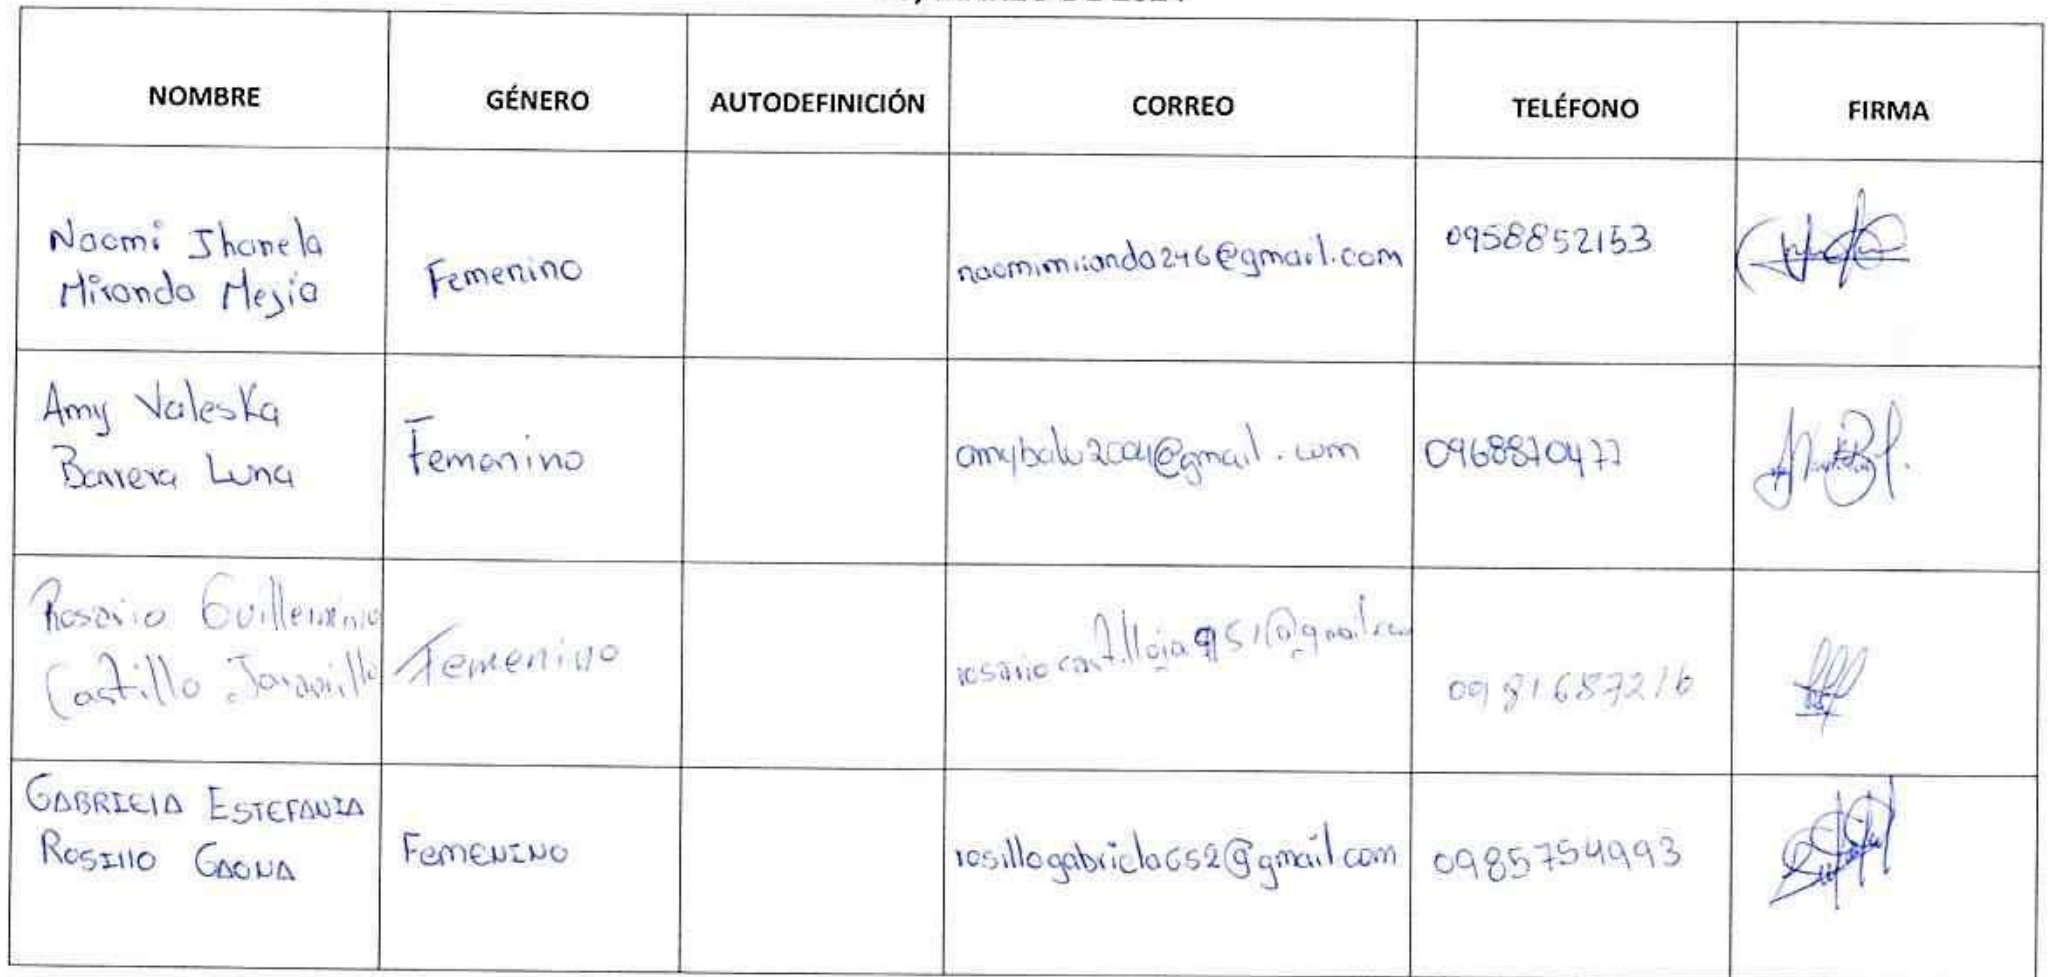 NOMBRE GÉNERO AUTODEFINICIÓN CORREO TELÉFONO FIRMA
Naomi Jhanela
Miranda Mejia
Femenino
naomimiranda246@gmail.com
0958852153
Amy Valeska
Barrera Luna
Femenino
amybalu2001@gmail.com
0968870477
Rosario Guillermina
Castillo Jaramillo
Femenino
0981687216
GABRIELA ESTEFANIA
ROSILLO GAONA
FEMENINO
rosillogabriela652@gmail.com
0985754993